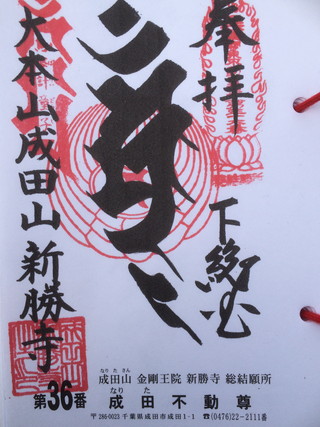 奉拝
下総国
大本山成田山新勝寺
なりたさん
成田山 金剛王院 新勝寺 総結願所
なりた
第36番 成田不動尊
〒286-0023 千葉県成田市成田1-1 ☎(0476)22-2111番